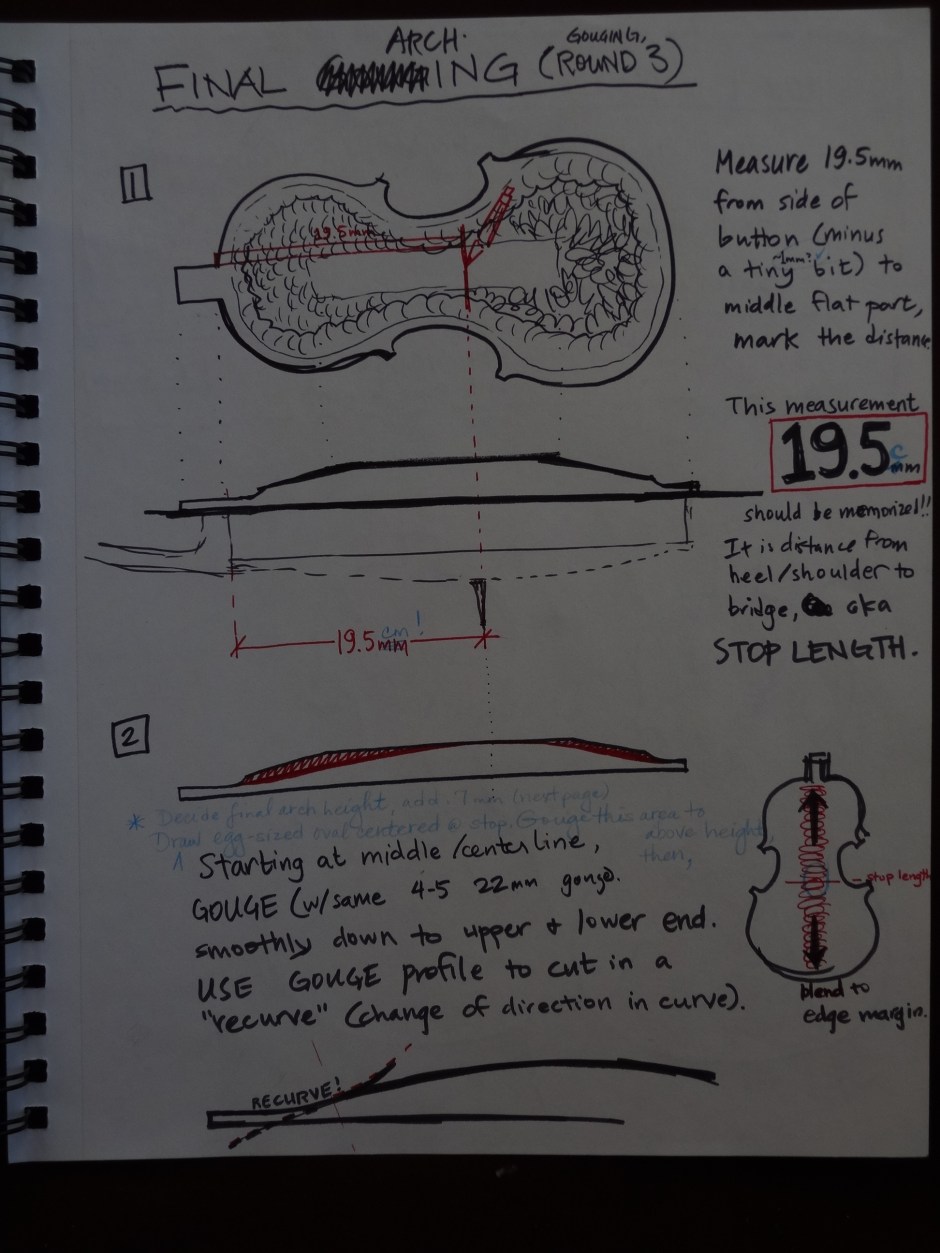 ARCH. GOUGING,
FINAL ING (ROUND 3)
1
19.5mm
Measure 19.5mm
from side of
button (minus
~1mm?
a tiny bit) to
middle flat part,
mark the distance
This measurement
19.5 c
mm
should be memorized!!
It is distance from
heel/shoulder to
bridge, aka
STOP LENGTH.
cm!
19.5mm
2
* Decide final arch height, add .7mm (next page)
Draw egg-sized oval centered @ stop. Gouge this area to
above height,
then,
Starting at middle/center line,
GOUGE (w/same 4-5 22mm gouge.
smoothly down to upper + lower end.
USE GOUGE profile to cut in a
"recurve" (change of direction in curve).
stop length
blend to
edge margin.
RECURVE!